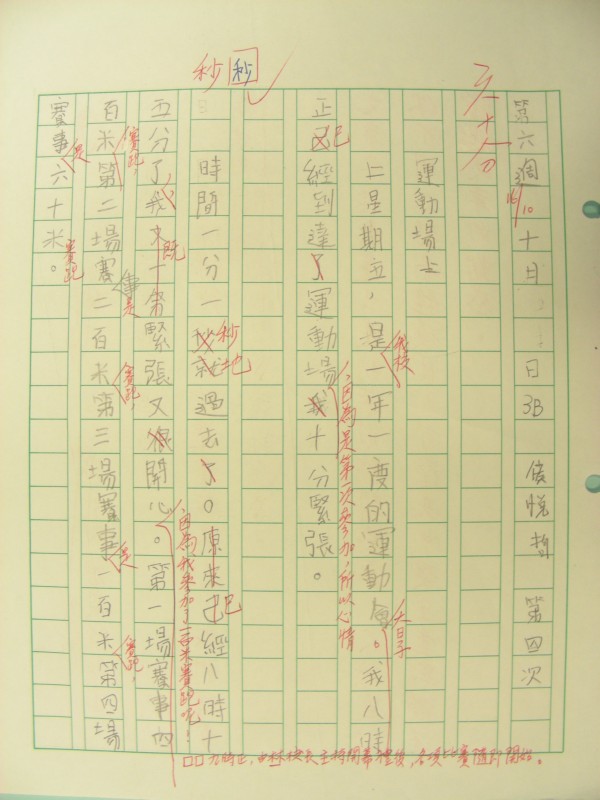 秒秒
第六週 十日 日 3B 侯悅哲 第四次
16/10
運動場上
上星期五,是一年一度的運動會。我八時
我校
大日子
正已經到達了運動場我十分緊張。
已
因為是第一次參加,所以心情
時間一分一秒就過去了。原來已經八時十
秒
地
已
五分了,我又十分緊張又很開心。第一場賽事四
既
因為我參加了一百米賽跑呢!
百米第二場賽二百米第三場賽事一百米第四場
賽跑,
事是
賽跑,
是
賽跑,
賽事六十米。
是
賽跑
九時正,由林校長主持開幕禮後,各項比賽隨即開始。